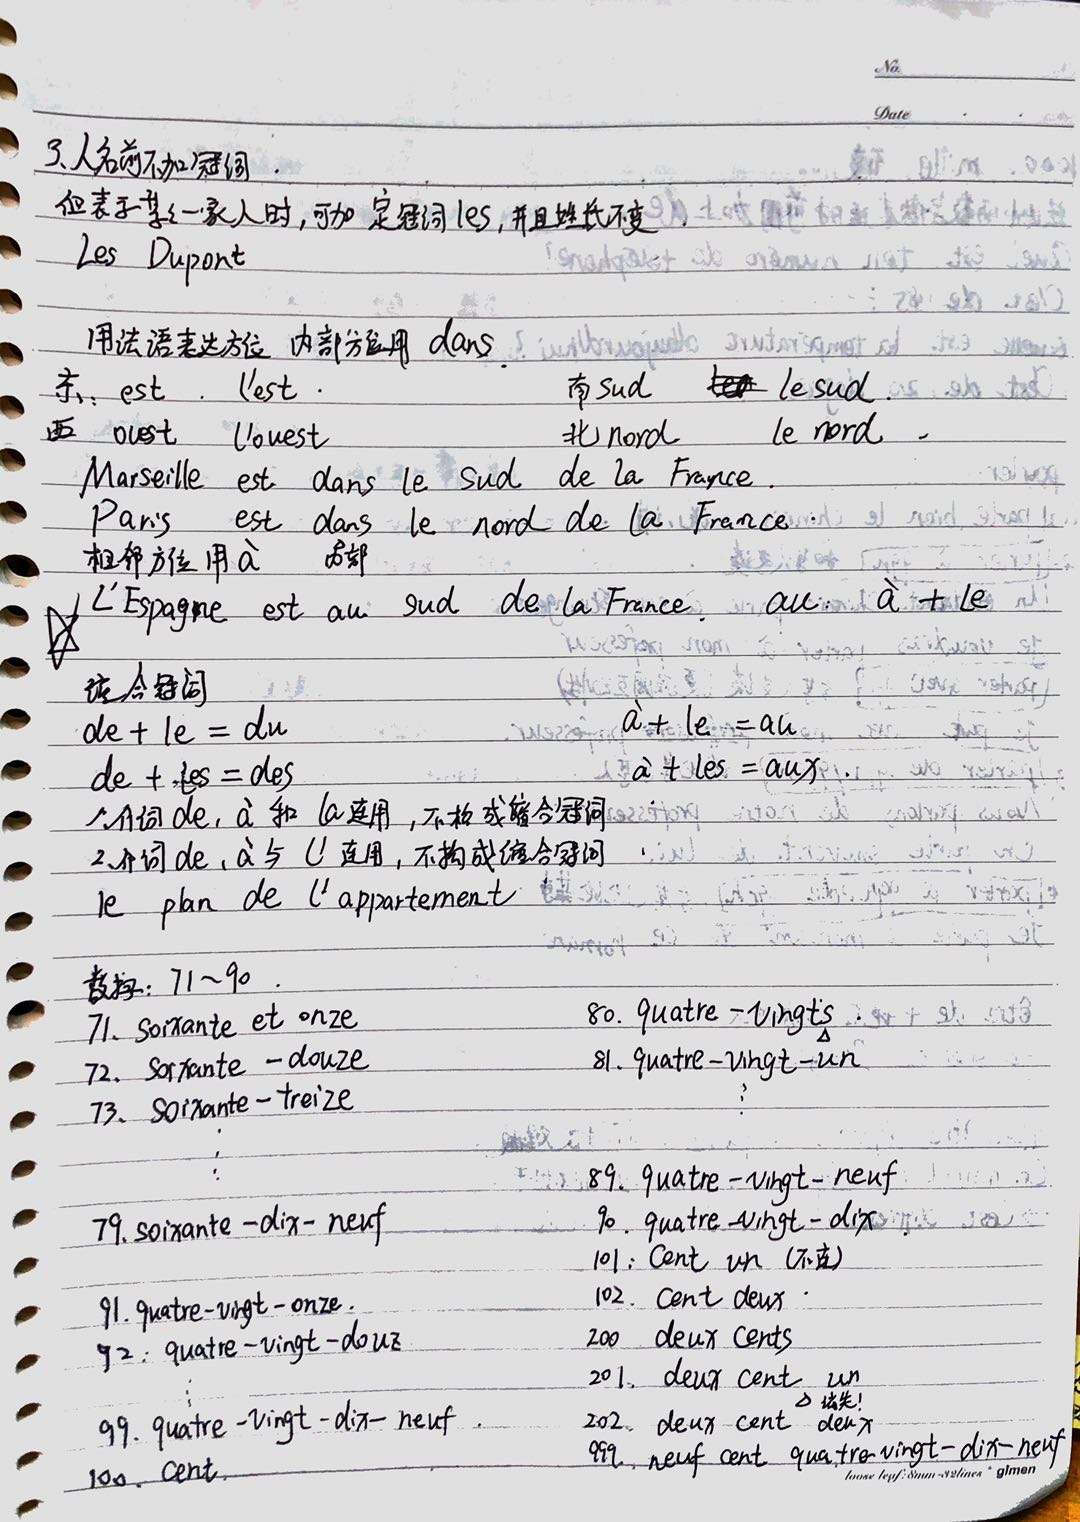 No.
Date
3、人名前不加冠词.
但表示某一家人时,可加定冠词les,并且姓氏不变.
Les Dupont
用法语表达方位 内部方位用 dans.
东: est. l'est. 南sud le sud.
西 ouest l'ouest 北nord le nord.
Marseille est dans le sud de la France.
Paris est dans le nord de la France.
相邻方位用à 外部
L'Espagne est au sud de la France. au: à + le
缩合冠词
de + le = du à + le = au
de + les = des à + les = aux.
1.介词de, à 和 la连用,不构成缩合冠词
2.介词de, à与 l' 连用,不构成缩合冠词.
le plan de l'appartement
数字: 71~90.
71. soixante et onze 80. quatre-vingts.
72. soixante-douze 81. quatre-vingt-un
73. soixante-treize
89. quatre-vingt-neuf
79. soixante-dix-neuf 90. quatre-vingt-dix.
101: cent un (不变)
91. quatre-vingt-onze. 102. cent deux.
92: quatre-vingt-douz 200 deux cents
201. deux cent un
99. quatre-vingt-dix-neuf. 202. deux cent deux
100. cent. 999. neuf cent quatre-vingt-dix-neuf
loose leaf: 8mm-32lines * glmen